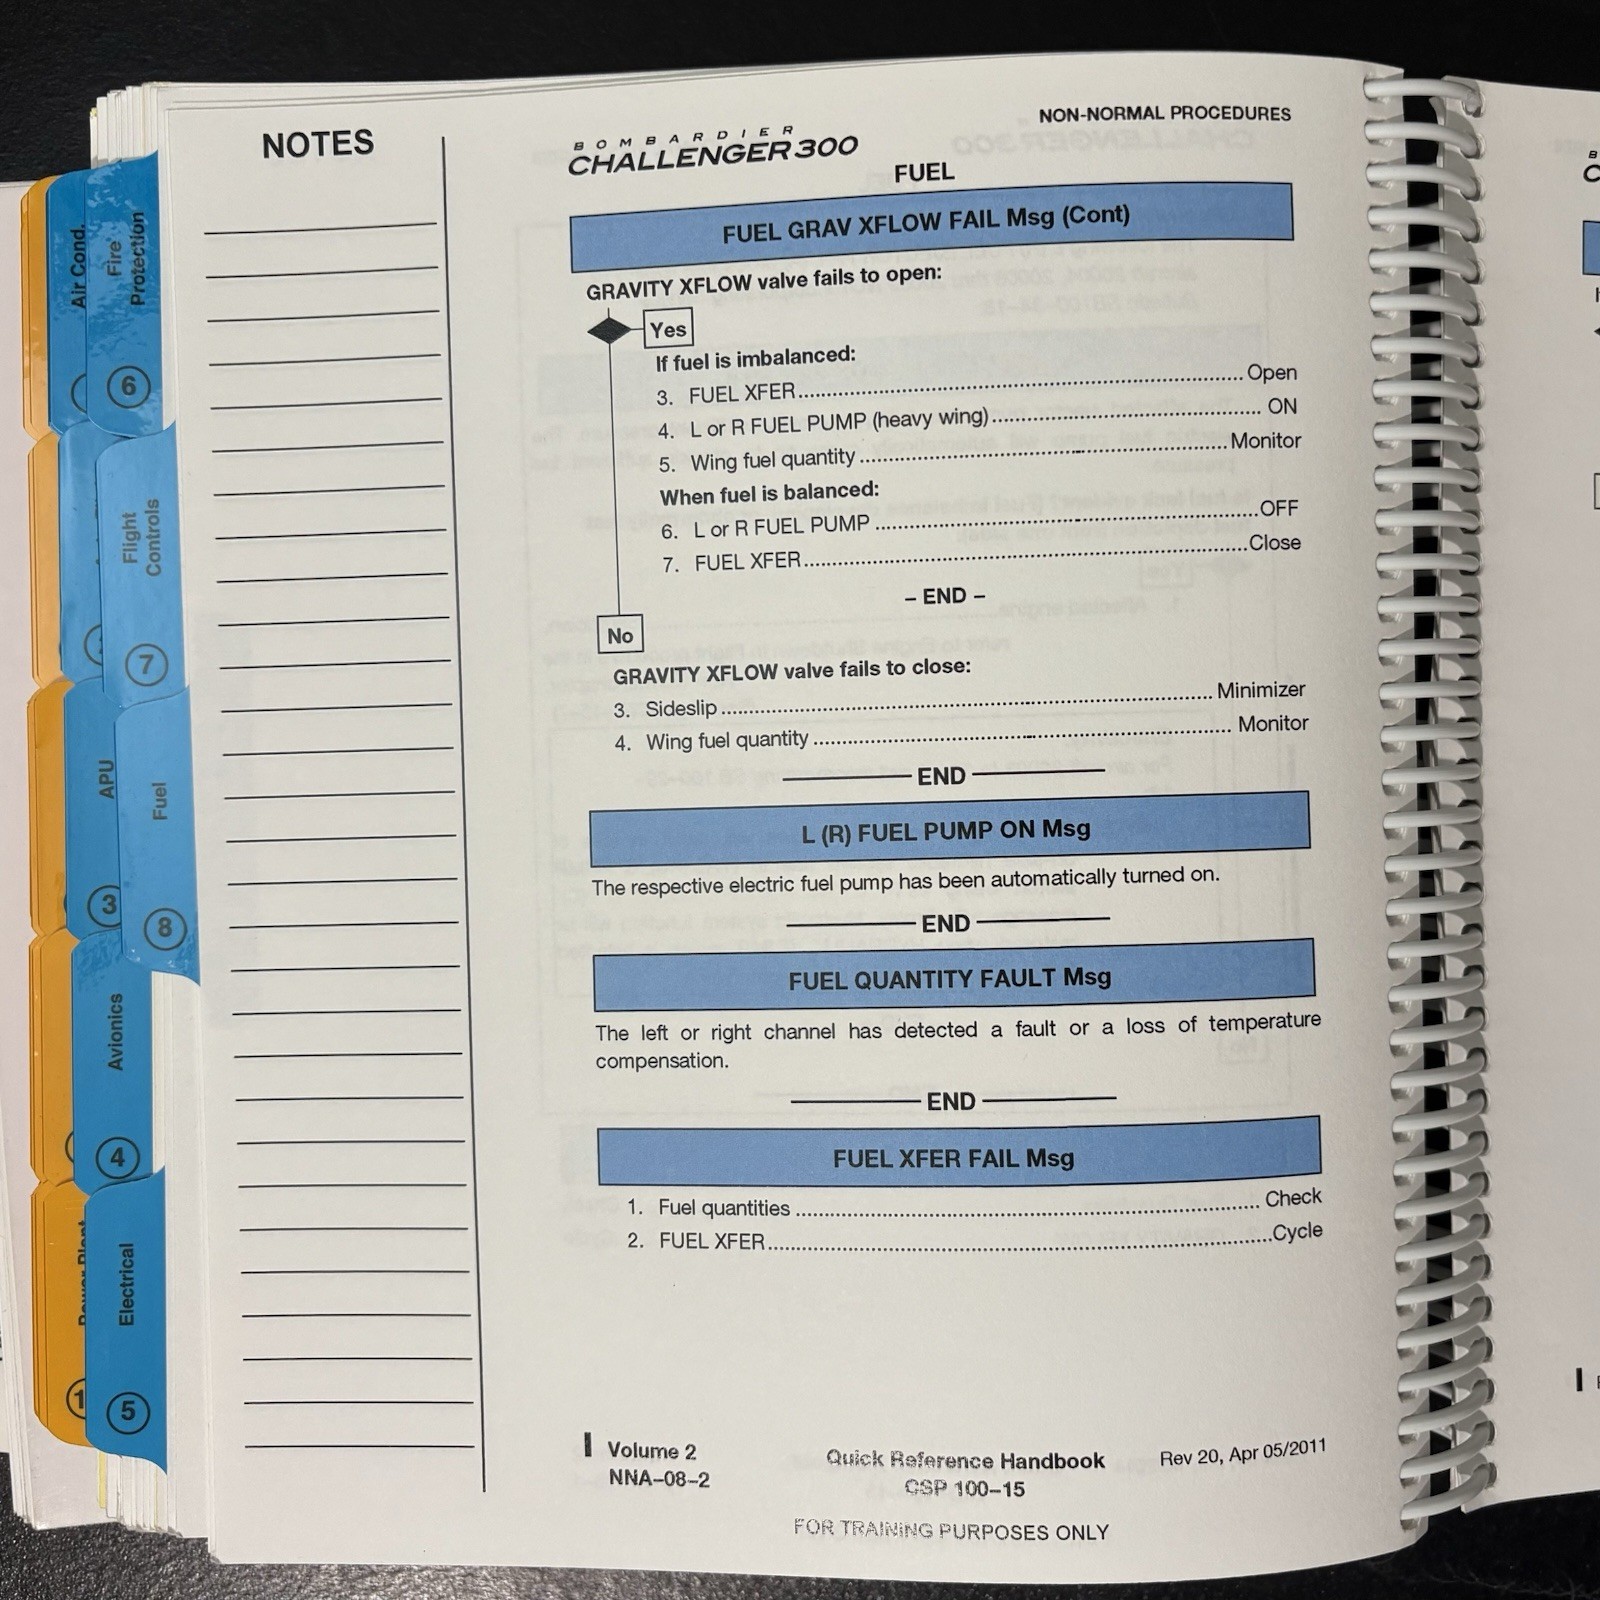 NOTES
NON-NORMAL PROCEDURES
BOMBARDIER
CHALLENGER 300
FUEL
FUEL GRAV XFLOW FAIL Msg (Cont)
GRAVITY XFLOW valve fails to open:
Yes
If fuel is imbalanced:
3. FUEL XFER Open
4. L or R FUEL PUMP (heavy wing) ON
5. Wing fuel quantity Monitor
When fuel is balanced:
6. L or R FUEL PUMP OFF
7. FUEL XFER Close
– END –
No
GRAVITY XFLOW valve fails to close:
3. Sideslip Minimizer
4. Wing fuel quantity Monitor
END
L (R) FUEL PUMP ON Msg
The respective electric fuel pump has been automatically turned on.
END
FUEL QUANTITY FAULT Msg
The left or right channel has detected a fault or a loss of temperature
compensation.
END
FUEL XFER FAIL Msg
1. Fuel quantities Check
2. FUEL XFER Cycle
Volume 2
NNA–08–2
Quick Reference Handbook
CSP 100–15
Rev 20, Apr 05/2011
FOR TRAINING PURPOSES ONLY
Air Cond.
Fire
Protection
6
Flight
Controls
7
APU
3
Fuel
8
Avionics
4
Power Plant
1
Electrical
5